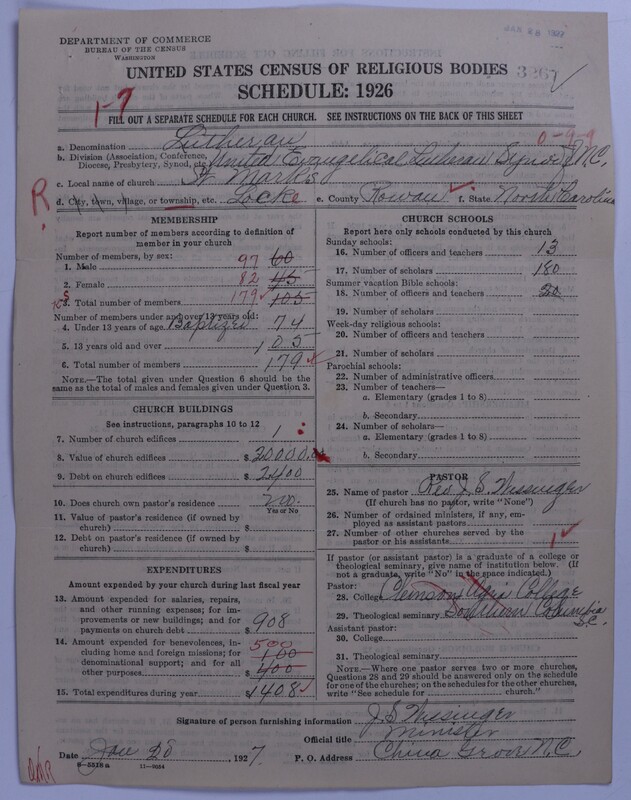 DEPARTMENT OF COMMERCE
BUREAU OF THE CENSUS
WASHINGTON
UNITED STATES CENSUS OF RELIGIOUS BODIES
3267
SCHEDULE: 1926
1-7
FILL OUT A SEPARATE SCHEDULE FOR EACH CHURCH. SEE INSTRUCTIONS ON THE BACK OF THIS SHEET
0-9-9
a. Denomination Lutheran
b. Division (Association, Conference, Diocese, Presbytery, Synod, etc. United Evangelical Lutheran Synod N.C.
c. Local name of church St Mark's
R.
d. City, town, village, or township, etc. Locke e. County Rowan f. State North Carolina
MEMBERSHIP
Report number of members according to definition of member in your church
Number of members, by sex:
1. Male 97 60
2. Female 82 45
3. Total number of members 179 105
Number of members under and over 13 years old:
4. Under 13 years of age Baptized 74
5. 13 years old and over 105
6. Total number of members 179
NOTE.—The total given under Question 6 should be the same as the total of males and females given under Question 3.
CHURCH BUILDINGS
See instructions, paragraphs 10 to 12
7. Number of church edifices 1
8. Value of church edifices $ 20000.00
9. Debt on church edifices $ 2400
10. Does church own pastor's residence
Yes or No
11. Value of pastor's residence (if owned by church) $
12. Debt on pastor's residence (if owned by church) $
EXPENDITURES
Amount expended by your church during last fiscal year
13. Amount expended for salaries, repairs, and other running expenses; for improvements or new buildings; and for payments on church debt $ 908
14. Amount expended for benevolences, including home and foreign missions; for denominational support; and for all other purposes $ 500 100 400
15. Total expenditures during year $ 1408
CHURCH SCHOOLS
Report here only schools conducted by this church
Sunday schools:
16. Number of officers and teachers 13
17. Number of scholars 180
Summer vacation Bible schools:
18. Number of officers and teachers 20
19. Number of scholars
Week-day religious schools:
20. Number of officers and teachers
21. Number of scholars
Parochial schools:
22. Number of administrative officers
23. Number of teachers—
a. Elementary (grades 1 to 8)
b. Secondary
24. Number of scholars—
a. Elementary (grades 1 to 8)
b. Secondary
PASTOR
25. Name of pastor Rev J. S. Wessinger
(If church has no pastor, write "None")
26. Number of ordained ministers, if any, employed as assistant pastors
27. Number of other churches served by the pastor or his assistants 1
If pastor (or assistant pastor) is a graduate of a college or theological seminary, give name of institution below. (If not a graduate, write "No" in the space indicated.)
Pastor:
28. College Clemson Agri College
29. Theological seminary Southern Columbia S.C.
Assistant pastor:
30. College
31. Theological seminary
NOTE.—Where one pastor serves two or more churches, Questions 28 and 29 should be answered only on the schedule for one of the churches; on the schedules for the other churches, write "See schedule for church."
Signature of person furnishing information J. S. Wessinger
Official title Minister
Date Jan 28, 1927 P. O. Address China Grove N.C.
11—9054